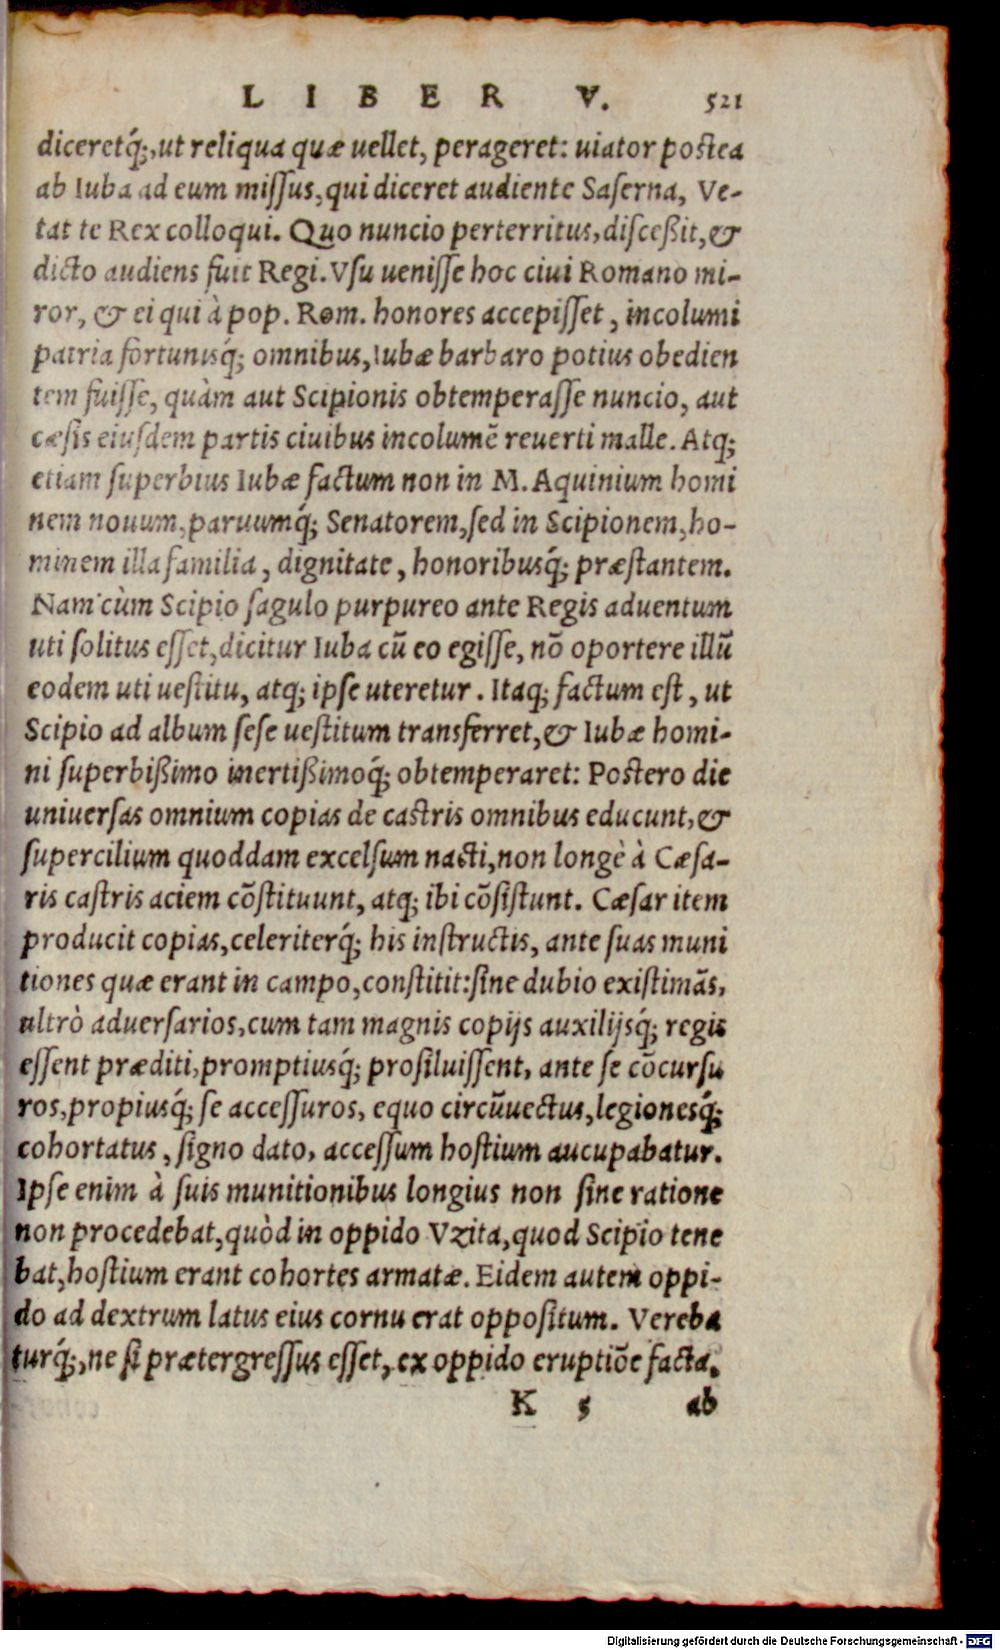 LIBER V. 521
diceretq́;, ut reliqua quæ uellet, perageret: uiator postea
ab Iuba ad eum missus, qui diceret audiente Saserna, Ve-
tat te Rex colloqui. Quo nuncio perterritus, disceßit, &
dicto audiens fuit Regi. Vsu uenisse hoc ciui Romano mi-
ror, & ei qui à pop. Rom. honores accepisset, incolumi
patria fortunisq́; omnibus, Iubæ barbaro potius obedien
tem fuisse, quàm aut Scipionis obtemperasse nuncio, aut
cæsis eiusdem partis ciuibus incolumẽ reuerti malle. Atq;
etiam superbius Iubæ factum non in M. Aquinium homi
nem nouum, paruumq́; Senatorem, sed in Scipionem, ho-
minem illa familia, dignitate, honoribusq́; præstantem.
Nam cùm Scipio sagulo purpureo ante Regis aduentum
uti solitus esset, dicitur Iuba cũ eo egisse, nõ oportere illũ
eodem uti uestitu, atq; ipse uteretur. Itaq; factum est, ut
Scipio ad album sese uestitum transferret, & Iubæ homi-
ni superbißimo inertißimoq́; obtemperaret: Postero die
uniuersas omnium copias de castris omnibus educunt, &
supercilium quoddam excelsum nacti, non longè à Cæsa-
ris castris aciem cõstituunt, atq; ibi cõsistunt. Cæsar item
producit copias, celeriterq́; his instructis, ante suas muni
tiones quæ erant in campo, constitit: sine dubio existimãs,
ultrò aduersarios, cum tam magnis copijs auxilijsq́; regis
essent præditi, promptiusq́; prosiluissent, ante se cõcursu
ros, propiusq́; se accessuros, equo circũuectus, legionesq́;
cohortatus, signo dato, accessum hostium aucupabatur.
Ipse enim à suis munitionibus longius non sine ratione
non procedebat, quòd in oppido Vzita, quod Scipio tene
bat, hostium erant cohortes armatæ. Eidem autem oppi-
do ad dextrum latus eius cornu erat oppositum. Vereba
turq́;, ne si prætergressus esset, ex oppido eruptiõe facta,
K 5 ab
Digitalisierung gefördert durch die Deutsche Forschungsgemeinschaft - DFG